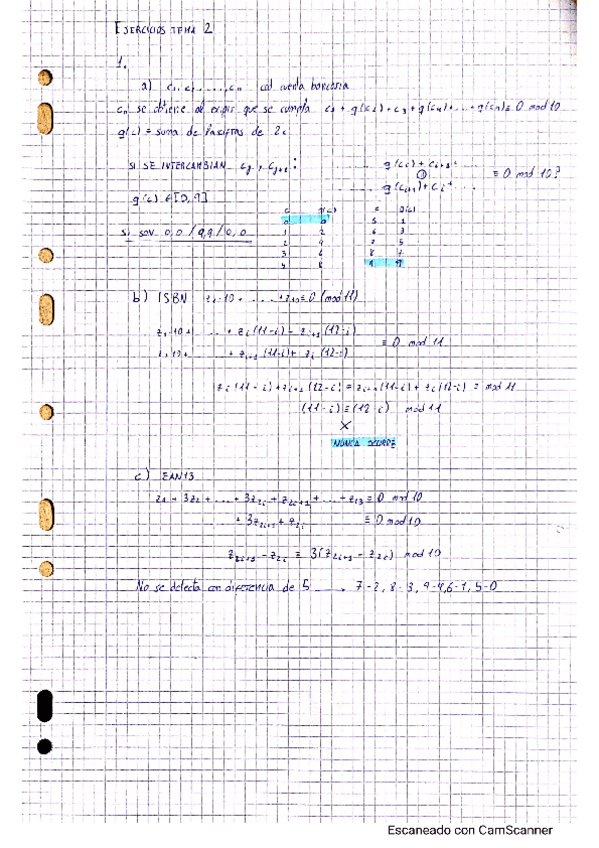 EJERCICIOS TEMA 2
1.
a) c₁, c₂, ..., cₙ cód cuenta bancaria
cₙ se obtiene al exigir que se cumpla c₁ + g(c₂) + c₃ + g(c₄) + ... + g(cₙ) ≡ 0 mod 10
g(c) = suma de las cifras de 2c
SI SE INTERCAMBIAN cⱼ, cⱼ₊₁:
... g(cᵢ) + cᵢ₊₁ ...
... g(cᵢ₊₁) + cᵢ ... ≡ 0 mod 10?
g(c) ∈ [0, 9]
Si son 0,0 / 9,9 / 0,0
c g(c) c g(c)
0 0 5 1
1 2 6 3
2 4 7 5
3 6 8 7
4 8 9 9
b) ISBN z₁·10 + ... + z₁₀ ≡ 0 (mod 11)
z₁·10 + ... + zᵢ(11-i) + zᵢ₊₁(12-i)
z₁·10 + ... + zᵢ₊₁(11-i) + zᵢ(12-i) ≡ 0 mod 11
zᵢ(11-i) + zᵢ₊₁(12-i) ≡ zᵢ₊₁(11-i) + zᵢ(12-i) ≡ mod 11
(11-i) ≡ (12-i) mod 11
X
NUNCA OCURRE
c) EAN13
z₁ + 3z₂ + ... + 3z₂ᵢ + z₂ᵢ₊₁ + ... + z₁₃ ≡ 0 mod 10
+ 3z₂ᵢ₊₁ + z₂ᵢ ≡ 0 mod 10
z₂ᵢ₊₁ - z₂ᵢ ≡ 3(z₂ᵢ₊₁ - z₂ᵢ) mod 10
No se detecta con diferencia de 5 → 7-2, 8-3, 9-4, 6-1, 5-0
Escaneado con CamScanner